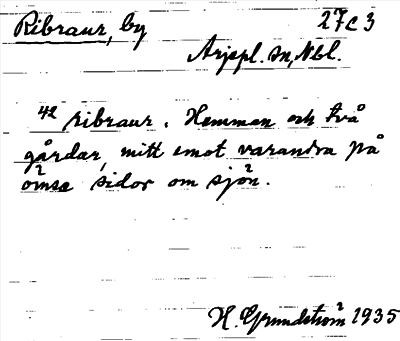 Ribraur, by 27C3
Arjepl. sn, Nbl.
42 ribraur. Hemman och två
gårdar, mitt emot varandra på
ömse sidor om sjön.
H. Grundström 1935